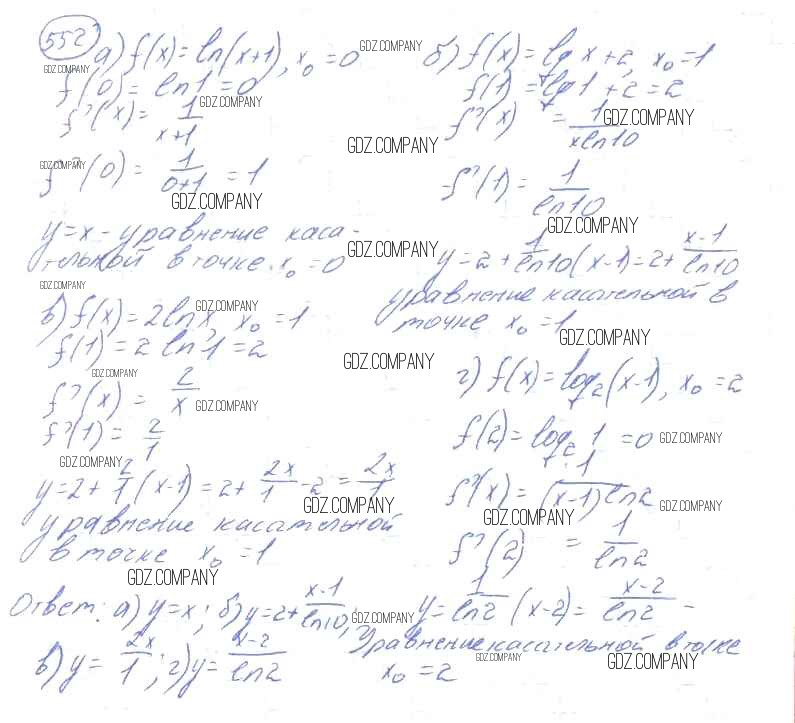 552
а) f(x) = ln(x+1), x₀ = 0
GDZ.COMPANY
GDZ.COMPANY
f(0) = ln1 = 0
GDZ.COMPANY
f'(x) = 1/(x+1)
GDZ.COMPANY
f'(0) = 1/(0+1) = 1
GDZ.COMPANY
y=x - уравнение каса-
тельной в точке x₀ = 0
GDZ.COMPANY
б) f(x) = lg x + 2, x₀ = 1
f(1) = lg1 + 2 = 2
f'(x) = 1/(x ln10)
GDZ.COMPANY
GDZ.COMPANY
f'(1) = 1/ln10
GDZ.COMPANY
GDZ.COMPANY
y = 2 + 1/ln10 (x-1) = 2 + (x-1)/ln10
уравнение касательной в
точке x₀ = 1
GDZ.COMPANY
в) f(x) = 2lnx, x₀ = 1
GDZ.COMPANY
f(1) = 2 ln1 = 2
GDZ.COMPANY
GDZ.COMPANY
f'(x) = 2/x
GDZ.COMPANY
f'(1) = 2/1
GDZ.COMPANY
y = 2 + 2/1 (x-1) = 2 + 2x/1 - 2 = 2x/1
GDZ.COMPANY
уравнение касательной
в точке x₀ = 1
GDZ.COMPANY
г) f(x) = log₂(x-1), x₀ = 2
f(2) = log₂ 1 = 0
GDZ.COMPANY
f'(x) = 1/((x-1) ln2)
GDZ.COMPANY
GDZ.COMPANY
f'(2) = 1/ln2
y = 1/ln2 (x-2) = (x-2)/ln2 -
Уравнение касательной в точке
GDZ.COMPANY
x₀ = 2
GDZ.COMPANY
Ответ: а) y=x; б) y=2+(x-1)/ln10;
GDZ.COMPANY
в) y = 2x/1; г) y = (x-2)/ln2